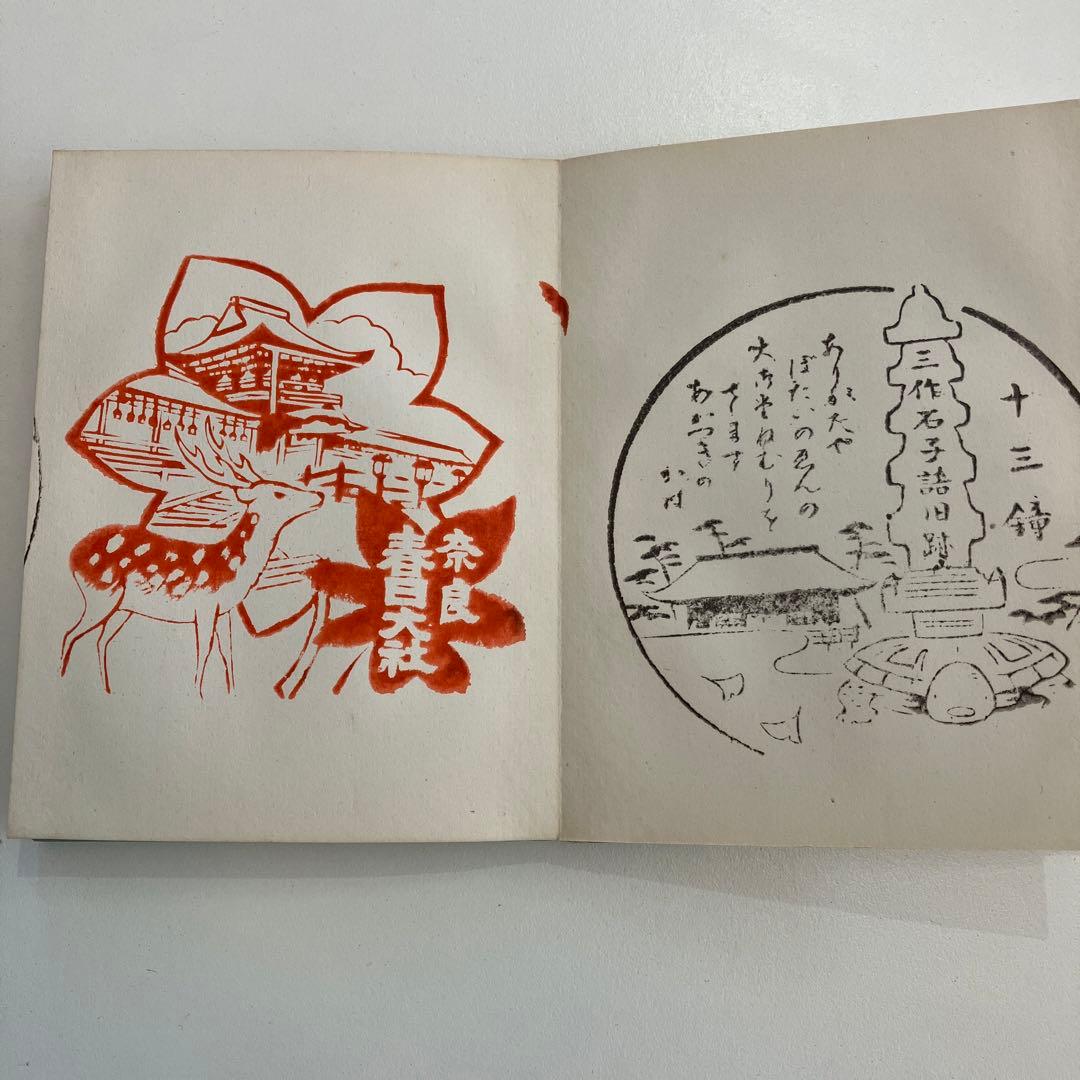 十三鐘
三作石子詰旧跡
ありがたや
ぼたいのゑんの
大御堂ねむりを
さます
あかつきの
かね
奈良
春日大社